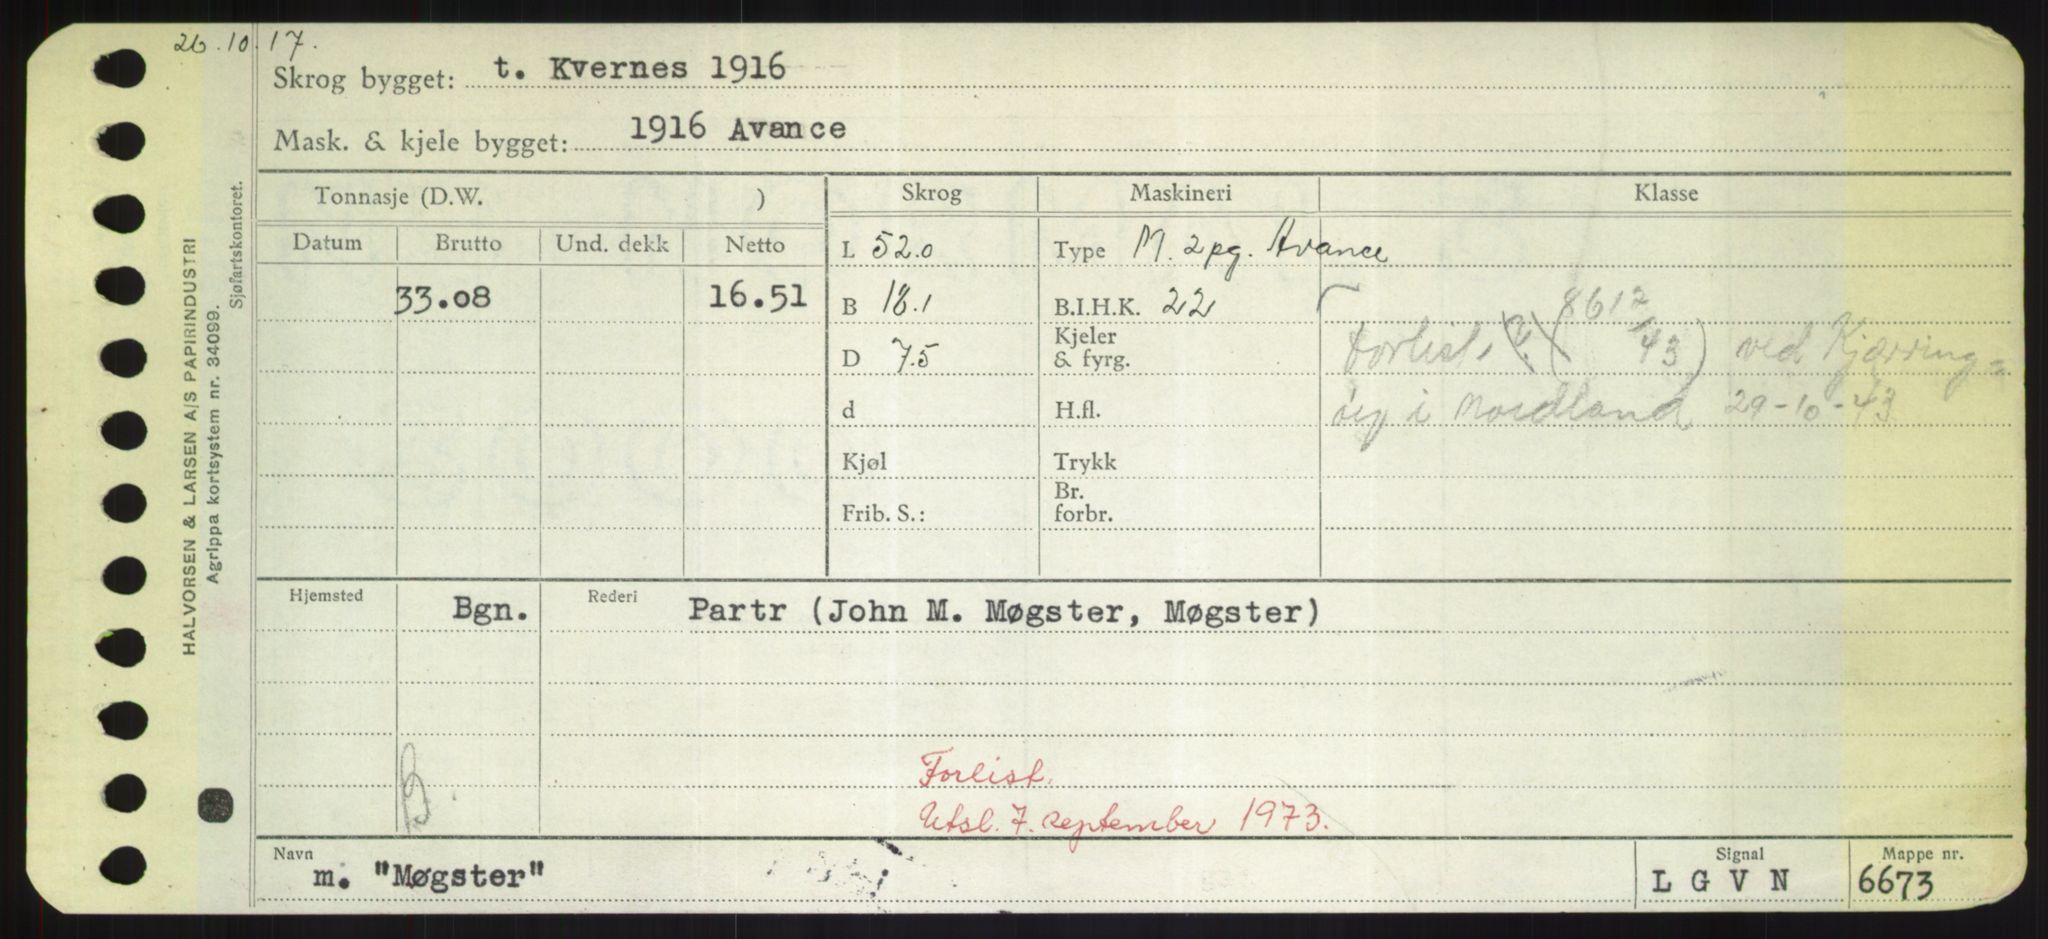 26.10.17.
Skrog bygget: t. Kvernes 1916
Mask. & kjele bygget: 1916 Avance
HALVORSEN & LARSEN A/S PAPIRINDUSTRI
Agrippa kortsystem nr. 34099.
Sjøfartskontoret.
Tonnasje (D.W. ) Skrog Maskineri Klasse
Datum Brutto Und. dekk Netto L 52.0 Type M. 2pg. Avance
33.08 16.51 B 18.1 B.I.H.K. 22
D 7.5 Kjeler & fyrg. Forlist. ? (8612/43) ved Kjærring=
d H.fl. øy i Nordland 29-10-43
Kjøl Trykk
Frib. S.: Br. forbr.
Hjemsted Bgn. Rederi Partr (John M. Møgster, Møgster)
B.
Forlist.
Utsl. 7. september 1973.
Navn Signal Mappe nr.
m. "Møgster" L G V N 6673